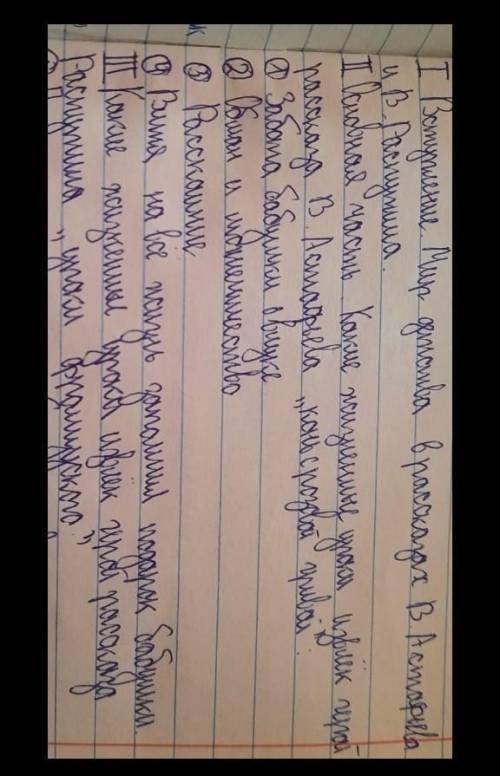 I Вступление. Мир детства в рассказах В Астафьева
и В. Распутина.
II Основная часть. Какие жизненные уроки извлёк герой
рассказа В. Астафьева „конь с розовой гривой".
① Забота бабушки о внуке
② Обман и мошенничество
③ Расскаяние
④ Витя на всё жизнь запомнил подарок бабушки.
III Какие жизненные уроки извлёк герой рассказа
Распутина „уроки французского"